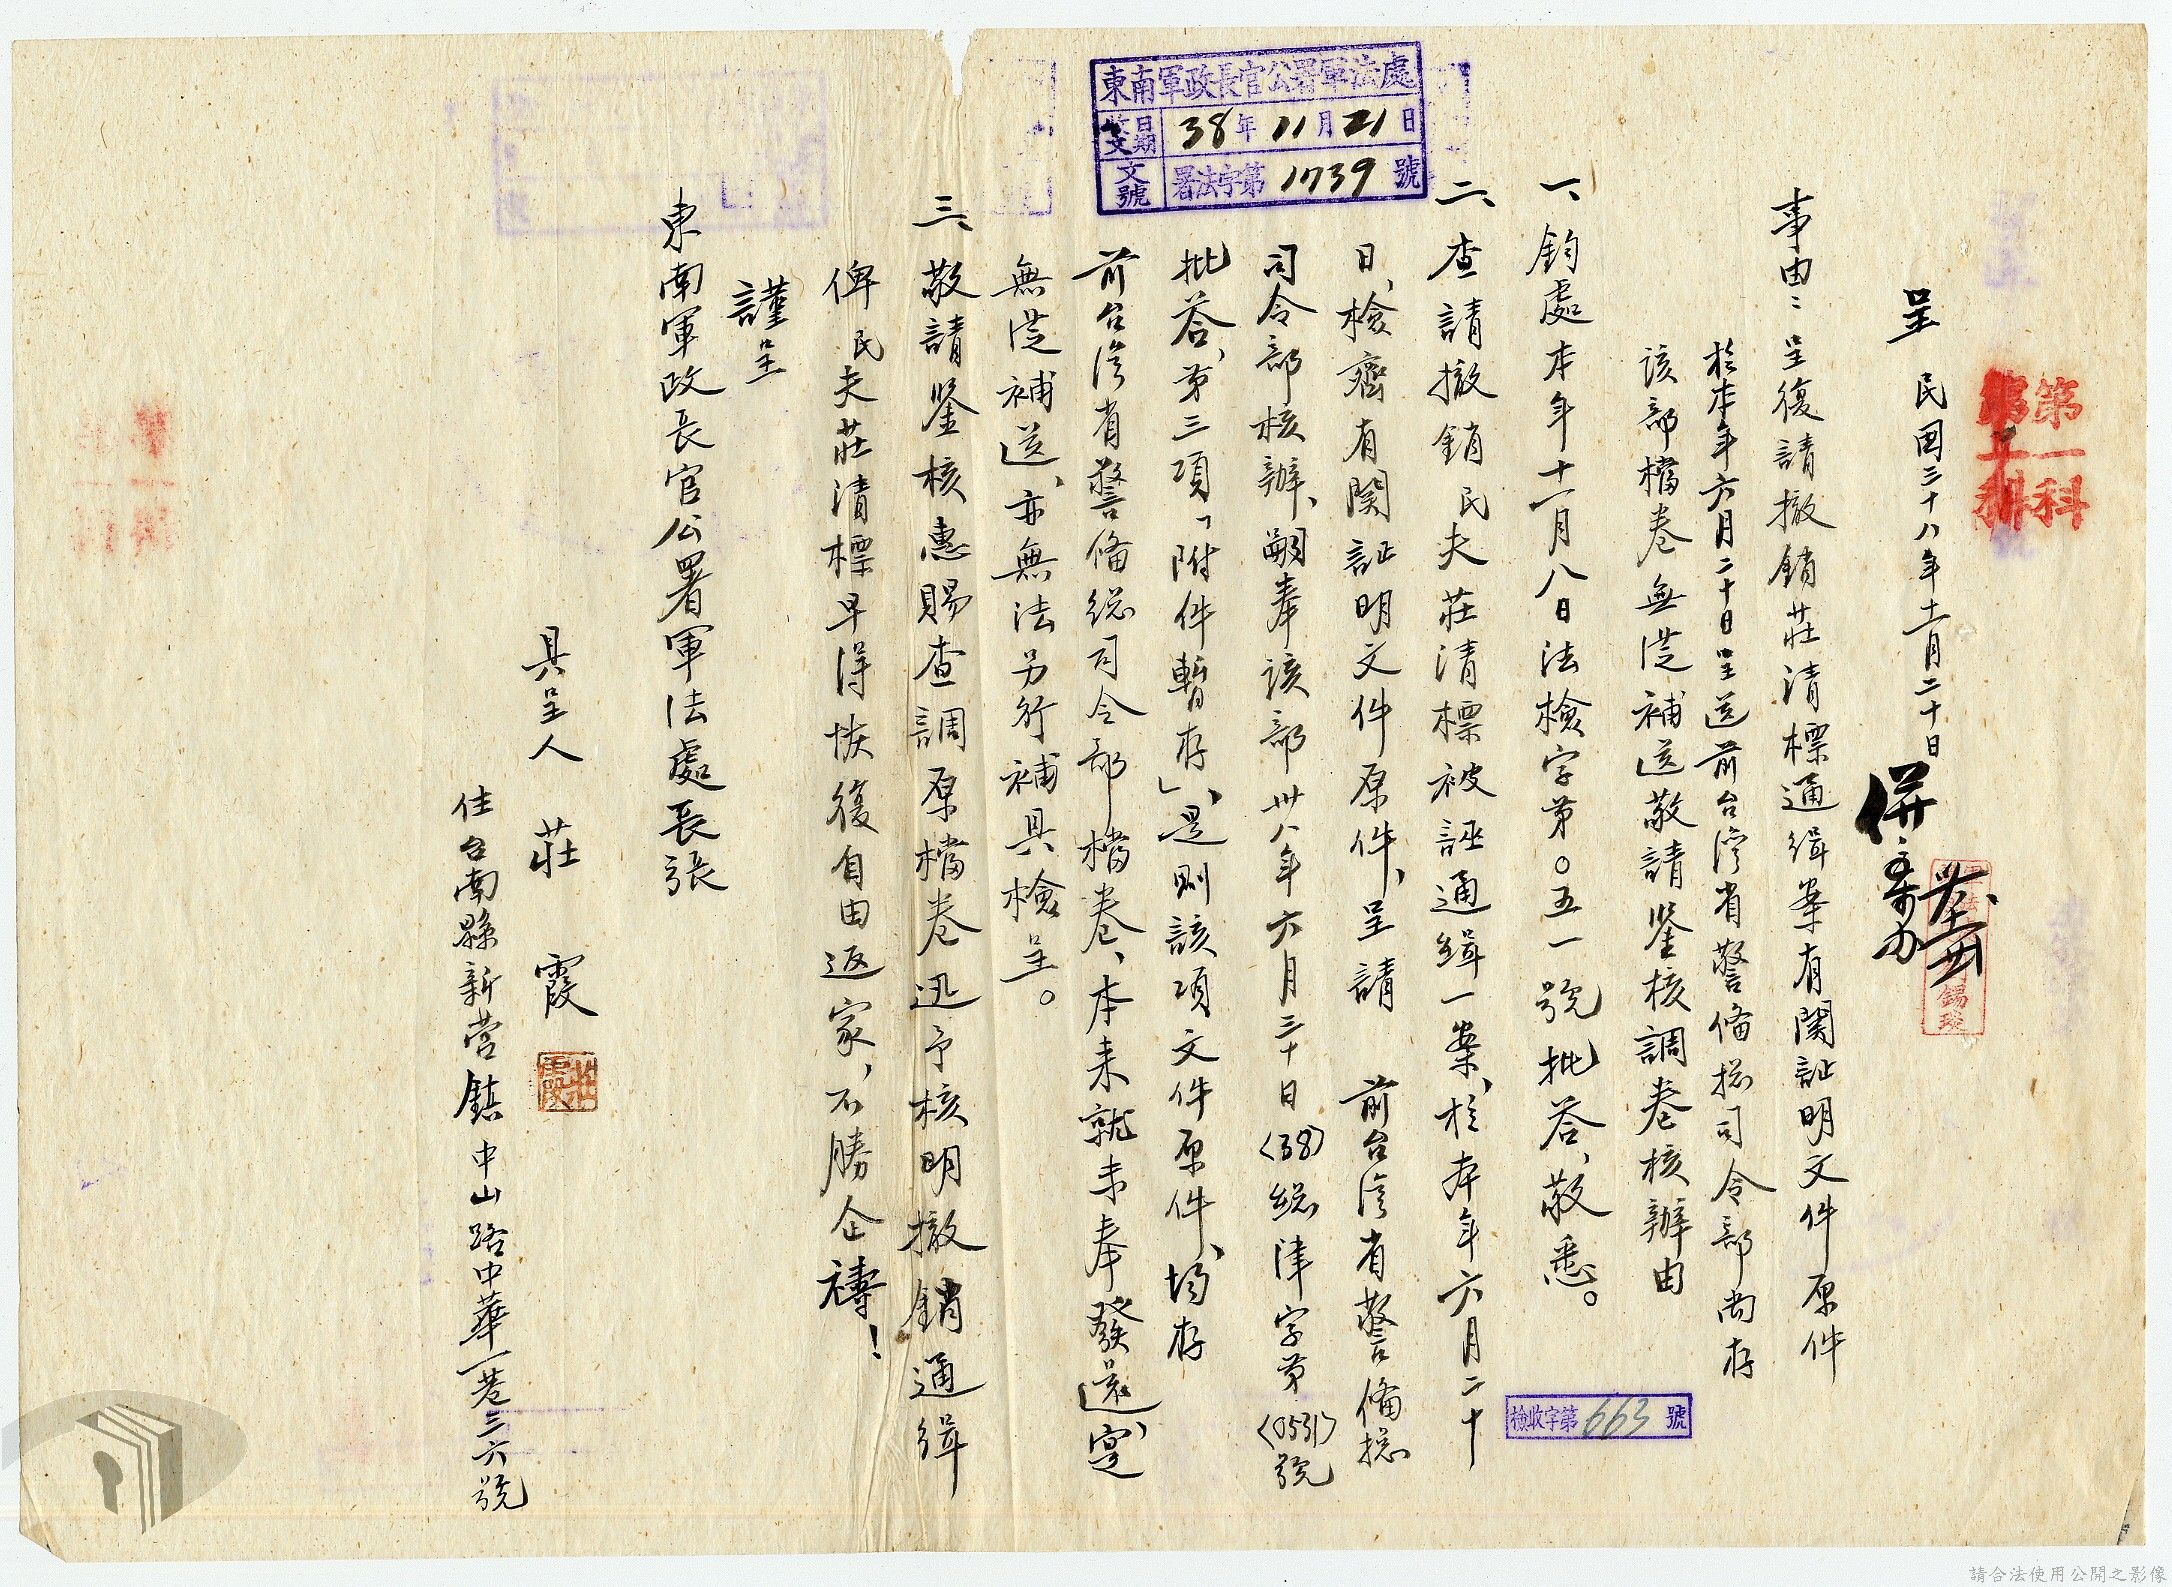 呈 民國三十八年十一月二十日
事由：呈復請撤銷莊清標通緝案有関証明文件原件
於本年六月二十日呈送前台湾省警备總司令部尚存
該部檔卷無從補送敬請鉴核調卷核辦由
一、鈞處本年十一月八日法檢字第○五一號批答、敬悉。
二、查請撤銷民夫莊清標被誣通緝一案、於本年六月二十
日、檢齊有関証明文件原件、呈請 前台湾省警备總
司令部核辦、嗣奉該部卅八年六月三十日(38)總津字第(0531)號
批答、第三項「附件暫存」、是則該項文件原件、均存
前台湾省警备总司令部檔卷、本来就未奉發還、寔
無從補送、亦無法另行補具檢呈。
三、敬請鉴核惠賜查調原檔卷迅予核明撤銷通緝
俾民夫莊清標早得恢復自由返家、不勝企禱！
謹呈
東南軍政長官公署軍法處長張
具呈人 莊霞
住台南縣新营鎮中山路中華一巷三六號
東南軍政長官公署軍法處
收文日期 38年11月21日
文號 署法字第1739號
第一科
檢收字第663號
併案办
莊霞
請合法使用公開之影像